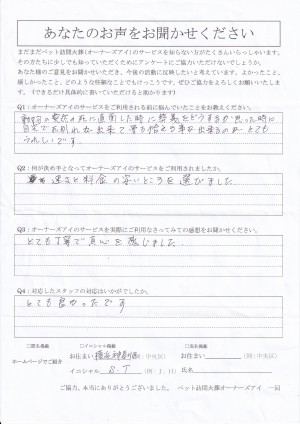 あなたのお声をお聞かせください
まだまだペット訪問火葬(オーナーズアイ)のサービスを知らない方がたくさんいらっしゃいます。
その方たちに少しでも知っていただくためにアンケートにご協力いただけないでしょうか。
あなた様のご意見をお聞かせいただき、今後の活動に反映したいと考えています。よかったこと、
嬉しかったこと、どのような些細なことでもけっこうです。ぜひご協力をよろしくお願いいたします。
(できるだけ具体的に書いていただけると助かります)
Q1:オーナーズアイのサービスをご利用される前に悩んでいたことをお教えください。
に直面した時に葬儀をどうするか思った時に
自宅でお別れが出来て骨も拾える事が出来るのが とても
うれしいです。
Q2:何が決め手となってオーナーズアイのサービスをご利用されましたか。
速さと料金の安いところを選びました
Q3:オーナーズアイのサービスを実際にご利用なさってみての感想をお聞かせください。
とても丁寧で真心を感じました
Q4:対応したスタッフの対応はいかがでしたか。
とても良かったです
□匿名掲載 □イニシャル掲載 □実名掲載
お住まい 横浜神奈川区(例:中央区) お住まい (例:中央区)
ホームページでご紹介
イニシャル S.T (例:J.H) 氏名
ご協力、本当にありがとうございました。 ペット訪問火葬オーナーズアイ 一同